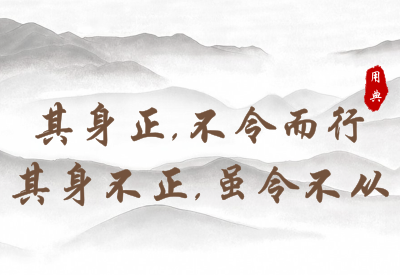 用典
其身正,不令而行
其身不正,虽令不从